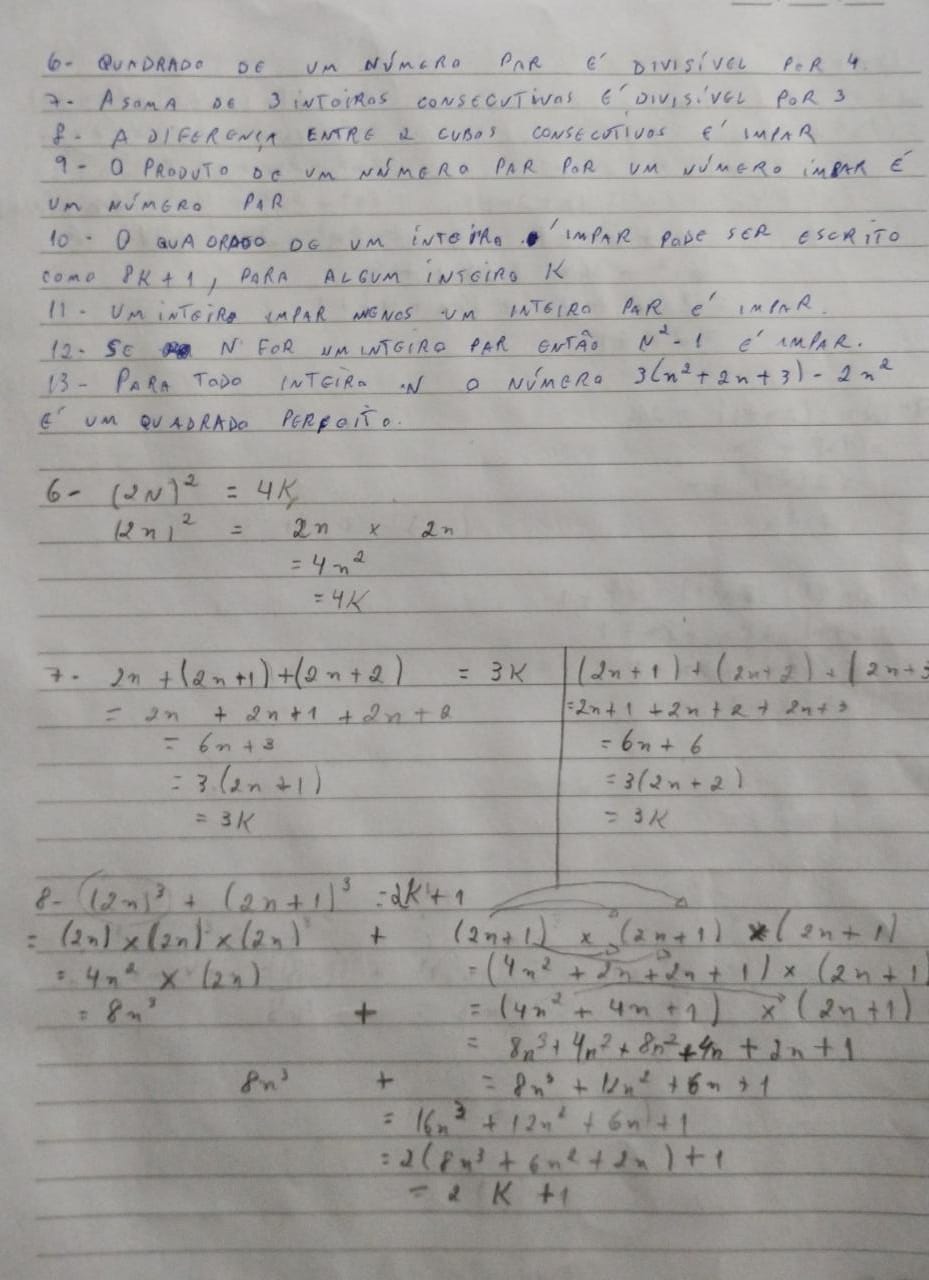 6- QUADRADO DE UM NÚMERO PAR É DIVISÍVEL POR 4
7- A SOMA DE 3 INTEIROS CONSECUTIVOS É DIVISÍVEL POR 3
8- A DIFERENÇA ENTRE 2 CUBOS CONSECUTIVOS É IMPAR
9- O PRODUTO DE UM NÚMERO PAR POR UM NÚMERO ÍMPAR É
UM NÚMERO PAR
10- O QUADRADO DE UM INTEIRO ÍMPAR PODE SER ESCRITO
COMO 8K+1, PARA ALGUM INTEIRO K
11- UM INTEIRO IMPAR MENOS UM INTEIRO PAR É IMPAR.
12- SE N FOR UM INTEIRO PAR ENTÃO N²-1 É IMPAR.
13- PARA TODO INTEIRO N O NÚMERO 3(n²+2n+3)-2n²
É UM QUADRADO PERFEITO.
6- (2N)² = 4K
(2n)² = 2n x 2n
= 4n²
= 4K
7- 2n+(2n+1)+(2n+2) = 3K
= 2n + 2n+1 + 2n+2
= 6n+3
= 3(2n+1)
= 3K
(2n+1)+(2n+2)+(2n+3
=2n+1+2n+2+2n+3
= 6n+6
=3(2n+2)
= 3K
8- (2n)³ + (2n+1)³ =2K+1
= (2n)x(2n)x(2n) + (2n+1) x (2n+1) x (2n+1)
= 4n² x (2n) =(4n²+2n+2n+1)x(2n+1)
= 8n³ + = (4n²+4n+1) x (2n+1)
= 8n³+4n²+8n²+4n+2n+1
8n³ + = 8n³+12n²+6n+1
= 16n³+12n²+6n+1
=2(8n³+6n²+2n)+1
= 2K+1